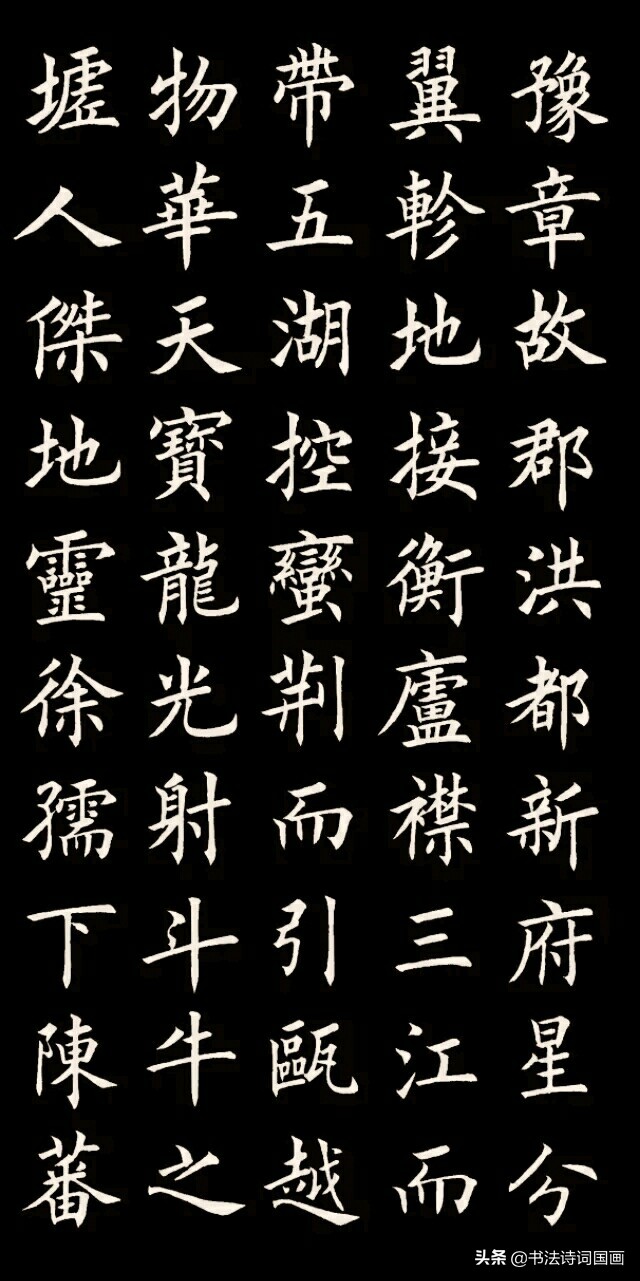 豫章故郡洪都新府星分
翼軫地接衡廬襟三江而
帶五湖控蠻荆而引甌越
物華天寶龍光射斗牛之
墟人傑地靈徐孺下陳蕃
头条 @书法诗词国画